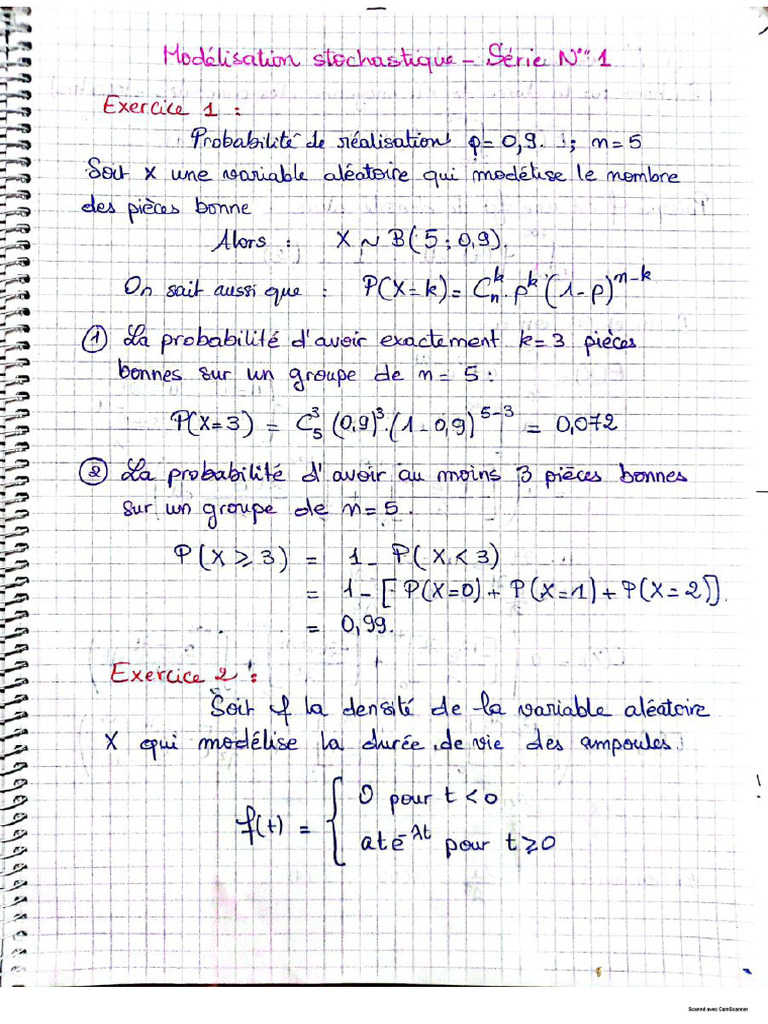 Modélisation stochastique - Série N° 1
Exercice 1 :
Probabilité de réalisation p = 0,9. ; n = 5
Soit X une variable aléatoire qui modélise le nombre
des pièces bonne
Alors : X ~ B(5 ; 0,9).
On sait aussi que : P(X=k) = C_n^k . p^k (1-p)^{n-k}
① La probabilité d'avoir exactement k=3 pièces
bonnes sur un groupe de n = 5 :
P(X=3) = C_5^3 (0,9)^3 . (1-0,9)^{5-3} = 0,072
② La probabilité d'avoir au moins 3 pièces bonnes
sur un groupe de n=5.
P(X ⩾ 3) = 1 - P(X < 3)
= 1 - [P(X=0) + P(X=1) + P(X=2)].
= 0,99.
Exercice 2 :
Soit f la densité de la variable aléatoire
X qui modélise la durée de vie des ampoules.
f(t) = { 0 pour t < 0
at e^{-λt} pour t ⩾ 0
Scanné avec CamScanner